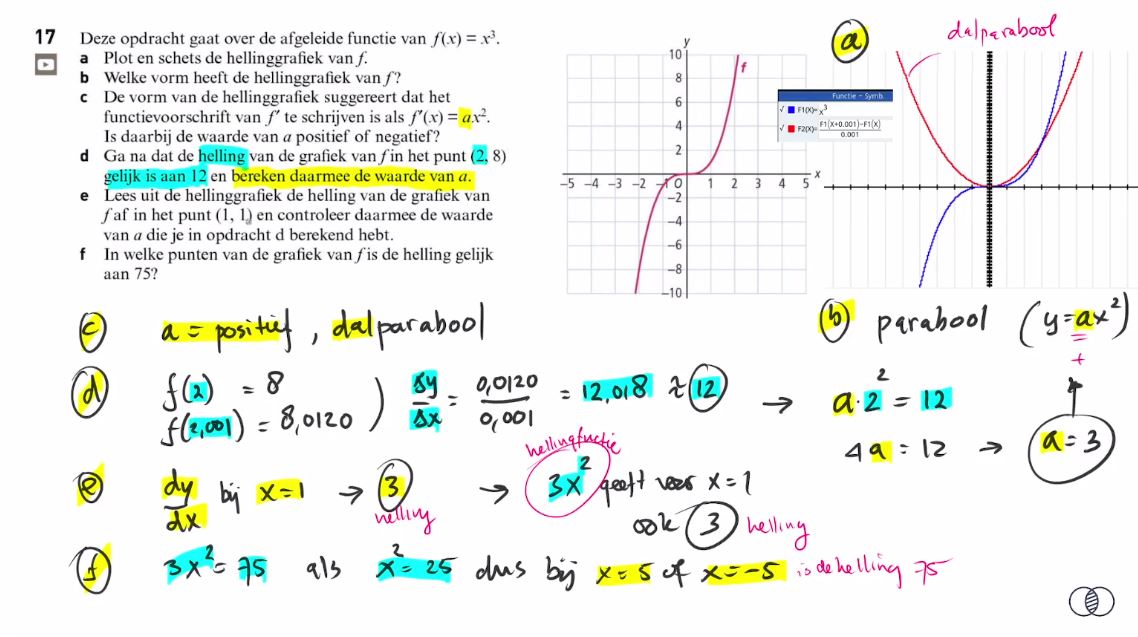 17 Deze opdracht gaat over de afgeleide functie van f(x) = x³.
a Plot en schets de hellinggrafiek van f.
b Welke vorm heeft de hellinggrafiek van f?
c De vorm van de hellinggrafiek suggereert dat het
functievoorschrift van f′ te schrijven is als f′(x) = ax².
Is daarbij de waarde van a positief of negatief?
d Ga na dat de helling van de grafiek van f in het punt (2, 8)
gelijk is aan 12 en bereken daarmee de waarde van a.
e Lees uit de hellinggrafiek de helling van de grafiek van
f af in het punt (1, 1) en controleer daarmee de waarde
van a die je in opdracht d berekend hebt.
f In welke punten van de grafiek van f is de helling gelijk
aan 75?
y
10
f
8
6
4
2
-5 -4 -3 -2 -1 O 1 2 3 4 5 x
-2
-4
-6
-8
-10
a
dalparabool
Functie – Symb.
√ F1(X)= x³
√ F2(X)= F1(X+0.001)−F1(X)
0.001
b parabool (y=ax²)
+
c a = positief, dalparabool
d f(2) = 8
f(2,001) = 8,0120
) Δy/Δx = 0,0120/0,001 = 12,018 ≈ 12 → a·2² = 12
4a = 12 → a = 3
e dy/dx bij x=1 → 3
helling
→ hellingfunctie
3x² geeft voor x=1
ook 3 helling
f 3x² = 75 als x² = 25 dus bij x=5 of x=-5 is de helling 75